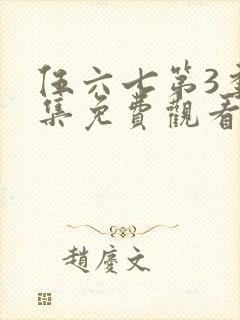 伍六七第3季
集免費觀看
趙慶文